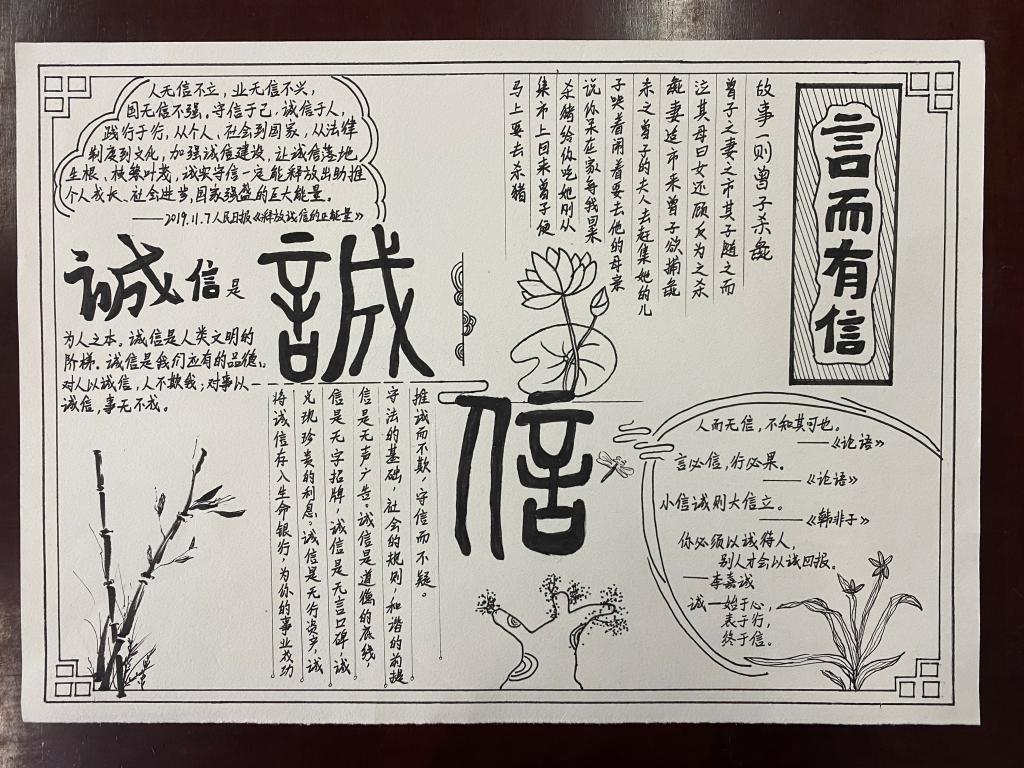 人无信不立，业无信不兴，
国无信不强。守信于己，诚信于人，
践行于行，从个人、社会到国家，从法律
制度到文化，加强诚信建设，让诚信落地
生根、枝繁叶茂，诚实守信一定能释放出助推
个人成长、社会进步，国家强盛的巨大能量。
——2019.11.7人民日报《释放诚信的正能量》
誠信是
为人之本。诚信是人类文明的
阶梯。诚信是我们应有的品德。
对人以诚信，人不欺我；对事以
诚信，事无不成。
誠
信
言而有信
故事一则曾子杀彘
曾子之妻之市其子随之而
泣其母曰女还顾反为之杀
彘妻适市来曾子欲捕彘
未之曾子的夫人去赶集她的儿
子哭着闹着要去他的母亲
说你呆在家等我回来
杀猪给你吃她刚从
集市上回来曾子便
马上要去杀猪
推诚而不欺，守信而不疑。
守法的基础，社会的规则，和谐的前提
信是无声广告。诚信是道德的底线，
信是无字招牌，诚信是无言口碑，诚
兑现珍贵的利息。诚信是无行资产，诚
将诚信存入生命银行，为你的事业成功
人而无信，不知其可也。
——《论语》
言必信，行必果。
——《论语》
小信诚则大信立。
——《韩非子》
你必须以诚待人，
别人才会以诚回报。
——李嘉诚
诚—始于心，
表于行，
终于信。